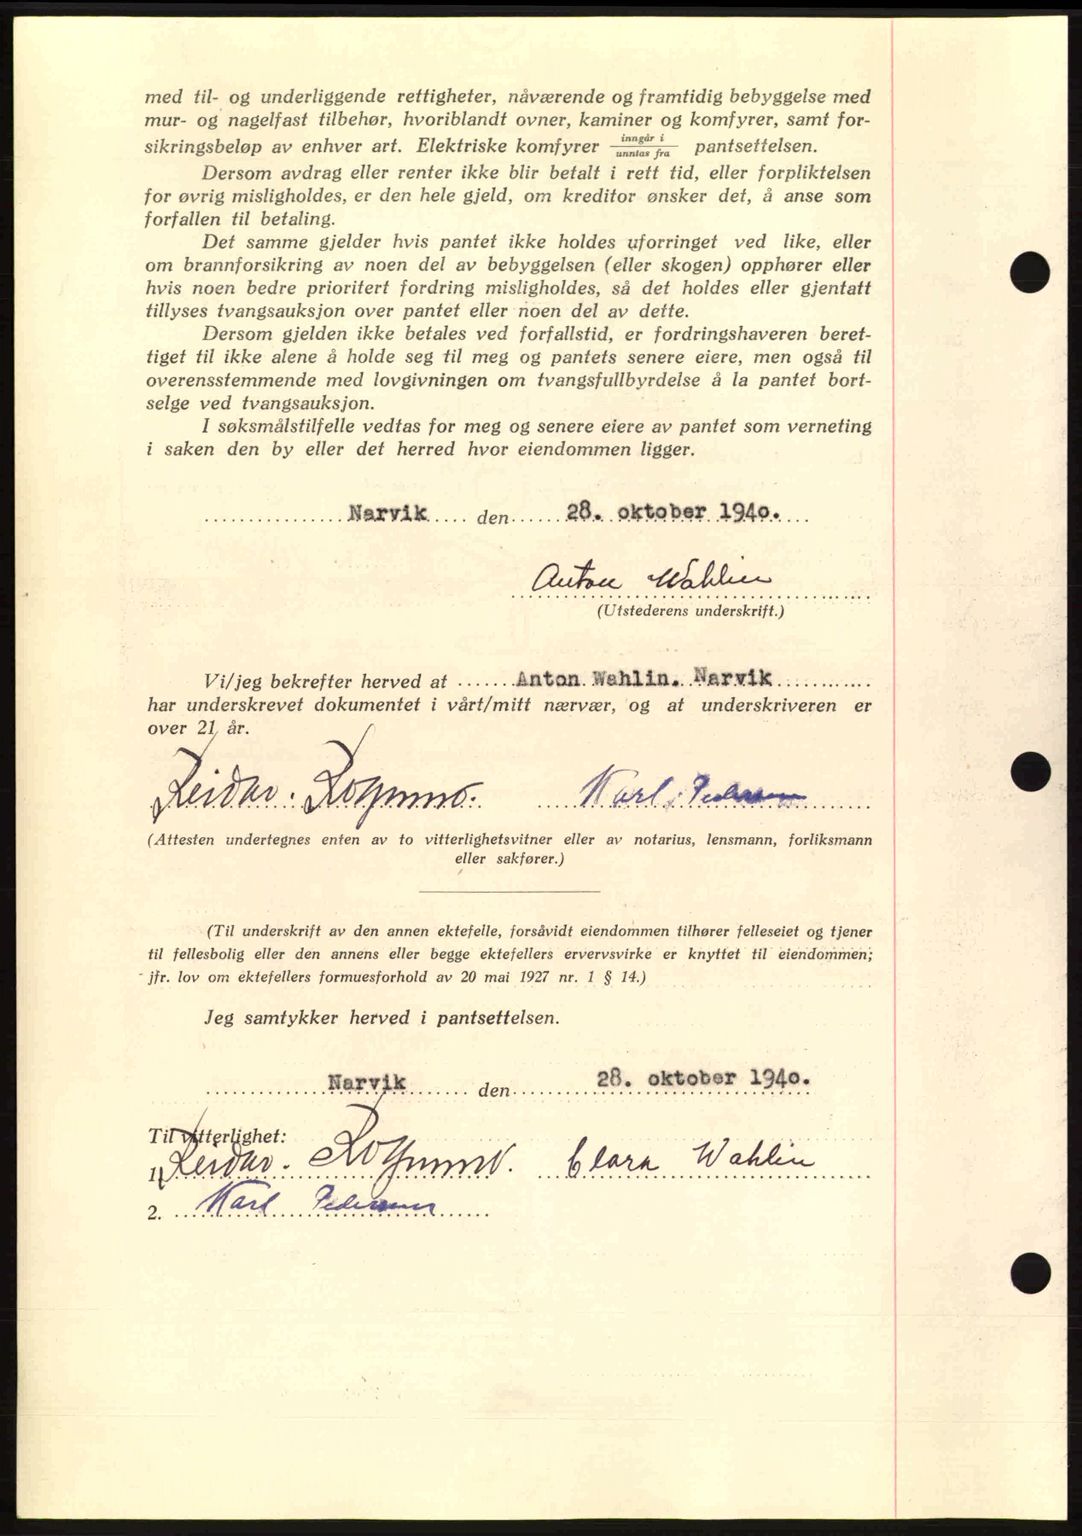 med til- og underliggende rettigheter, nåværende og framtidig bebyggelse med
mur- og nagelfast tilbehør, hvoriblandt ovner, kaminer og komfyrer, samt for-
sikringsbeløp av enhver art. Elektriske komfyrer inngår i / unntas fra pantsettelsen.
Dersom avdrag eller renter ikke blir betalt i rett tid, eller forpliktelsen
for øvrig misligholdes, er den hele gjeld, om kreditor ønsker det, å anse som
forfallen til betaling.
Det samme gjelder hvis pantet ikke holdes uforringet ved like, eller
om brannforsikring av noen del av bebyggelsen (eller skogen) opphører eller
hvis noen bedre prioritert fordring misligholdes, så det holdes eller gjentatt
tillyses tvangsauksjon over pantet eller noen del av dette.
Dersom gjelden ikke betales ved forfallstid, er fordringshaveren beret-
tiget til ikke alene å holde seg til meg og pantets senere eiere, men også til
overensstemmende med lovgivningen om tvangsfullbyrdelse å la pantet bort-
selge ved tvangsauksjon.
I søksmålstilfelle vedtas for meg og senere eiere av pantet som verneting
i saken den by eller det herred hvor eiendommen ligger.
Narvik den 28. oktober 1940.
Anton Wahlin
(Utstederens underskrift.)
Vi/jeg bekrefter herved at Anton Wahlin. Narvik
har underskrevet dokumentet i vårt/mitt nærvær, og at underskriveren er
over 21 år.
Reidar. Karl Pedersen
(Attesten undertegnes enten av to vitterlighetsvitner eller av notarius, lensmann, forliksmann
eller sakfører.)
(Til underskrift av den annen ektefelle, forsåvidt eiendommen tilhører felleseiet og tjener
til fellesbolig eller den annens eller begge ektefellers ervervsvirke er knyttet til eiendommen;
jfr. lov om ektefellers formuesforhold av 20 mai 1927 nr. 1 § 14.)
Jeg samtykker herved i pantsettelsen.
Narvik den 28. oktober 1940.
Til vitterlighet:
1. Reidar. Clara Wahlin
2. Karl Pedersen